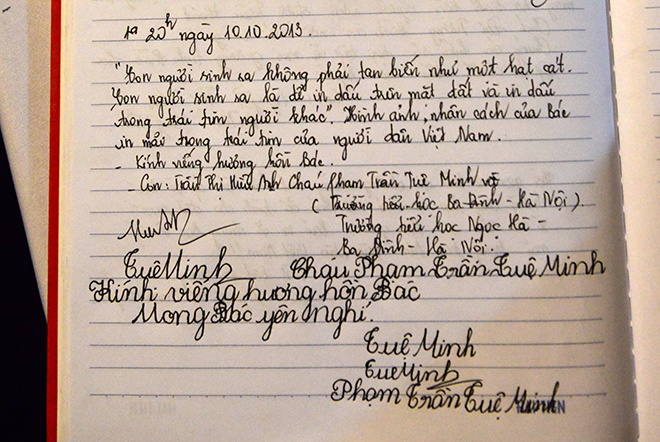 20h ngày 10.10.2013.
"Con người sinh ra không phải tan biến như một hạt cát.
Con người sinh ra là để in dấu trên mặt đất và in dấu
trong trái tim người khác". Hình ảnh, nhân cách của Bác
in mãi trong trái tim của người dân Việt Nam.
- Kính viếng hương hồn Bác.
- Con: Trần Thị Hữu Anh Cháu Phạm Trần Tuệ Minh
( Trường tiểu học Ba Đình - Hà Nội).
Trường tiểu học Ngọc Hà -
Ba Đình - Hà Nội.
Tuệ Minh Cháu Phạm Trần Tuệ Minh
Kính viếng hương hồn Bác
Mong Bác yên nghỉ.
Tuệ Minh
Tuệ Minh
Phạm Trần Tuệ Minh